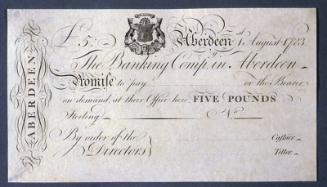 ABERDEEN
£5 Aberdeen 1 August 1783
The Banking Comp. in Aberdeen
Promise to pay or the Bearer
on demand at their Office here FIVE POUNDS
Sterling No
By order of the Cashier
Directors Teller